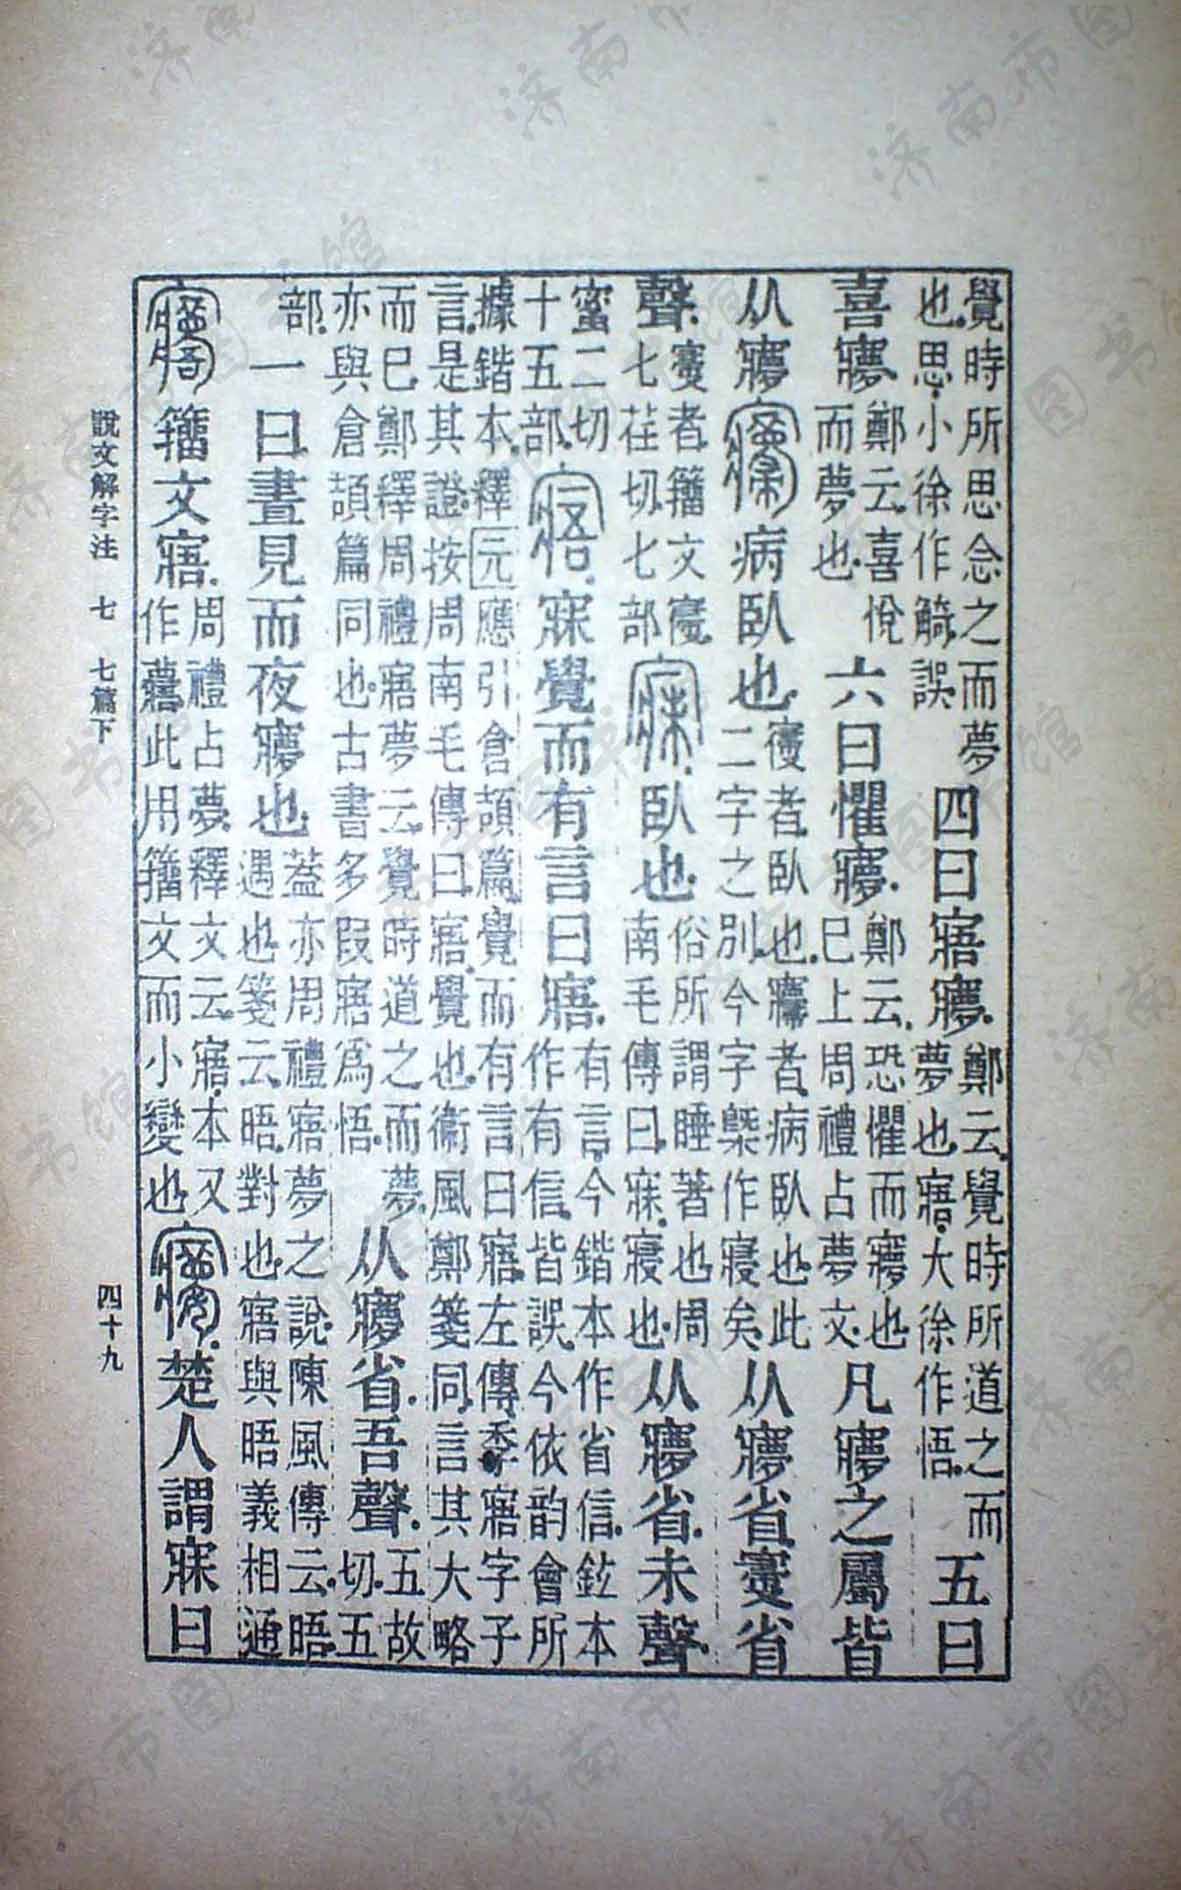 覺時所思念之而夢也。思、小徐作觭。誤。四曰寤㝱。鄭云。覺時所道之而夢也。寤、大徐作悟。五曰
喜㝱。鄭云。喜悅而夢也。六曰懼㝱。鄭云。恐懼而㝱也。巳上周禮占夢文。凡㝱之屬皆
从㝱。㝲病臥也。寢者、臥也。㝲者、病臥也。此二字之別。今字槩作寢矣。从㝱省。𡪢省
聲。𡪢者、籒文寢。七荏切。七部。寐臥也。俗所謂睡著也。周南毛傳曰。寐、寢也。从㝱省。未聲。
蜜二切。十五部。寤寐覺而有言曰寤。有言、今鍇本作省信。鉉本作有信。皆誤。今依韵會所
據鍇本。釋元應引倉頡篇。覺而有言曰寤。左傳。季寤字子言。是其證。按周南毛傳曰。寤、覺也。衞風鄭箋同。言其大略
而巳。鄭釋周禮寤夢云。覺時道之而夢。亦與倉頡篇同也。古書多叚寤爲悟。从㝱省。吾聲。五故切。五
部。一曰晝見而夜㝱也。蓋亦周禮寤夢之說。陳風傳云。晤、遇也。箋云。晤、對也。寤與晤義相通。
籒文寤。周禮占夢。釋文云。寤、本又作。此用籒文而小變也。楚人謂寐曰
說文解字注 七 七篇下 四十九